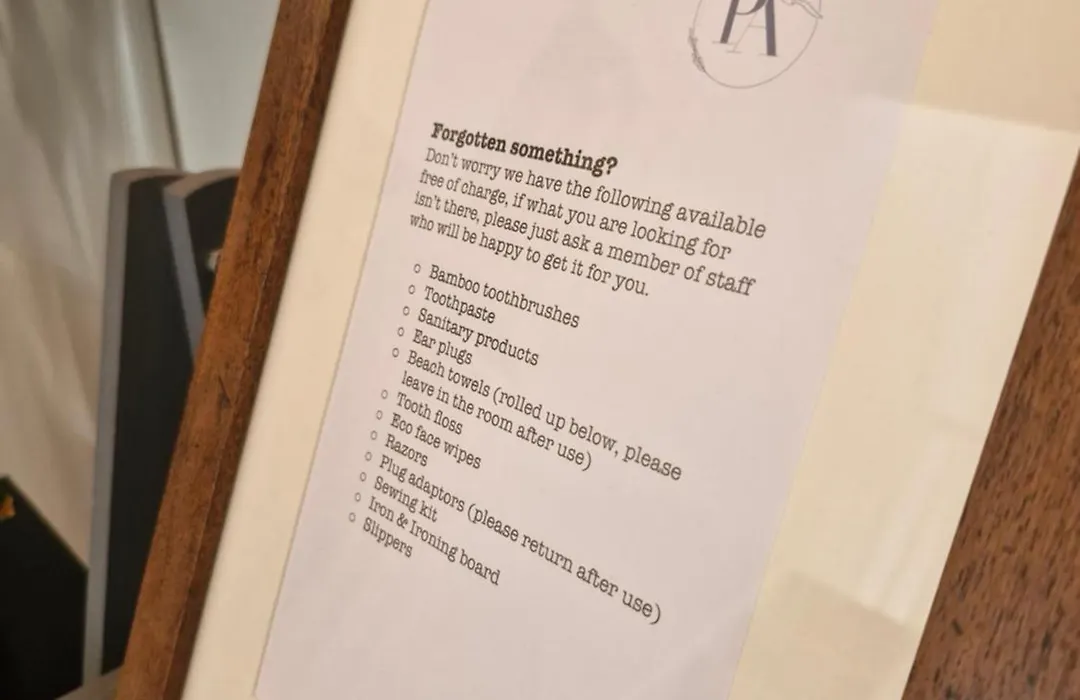 PA
Forgotten something?
Don't worry we have the following available
free of charge, if what you are looking for
isn't there, please just ask a member of staff
who will be happy to get it for you.
○ Bamboo toothbrushes
○ Toothpaste
○ Sanitary products
○ Ear plugs
○ Beach towels (rolled up below, please
leave in the room after use)
○ Tooth floss
○ Eco face wipes
○ Razors
○ Plug adaptors (please return after use)
○ Sewing kit
○ Iron & Ironing board
○ Slippers